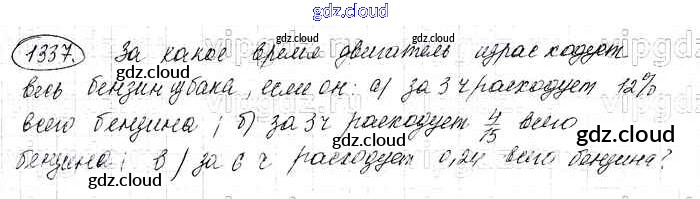 gdz.cloud
1337. За какое время двигатель израсходует
весь бензин из бака, если он: а) за 3 ч расходует 12%
всего бензина; б) за 3 ч расходует 4/15 всего
бензина; в) за 6 ч расходует 0,24 всего бензина?